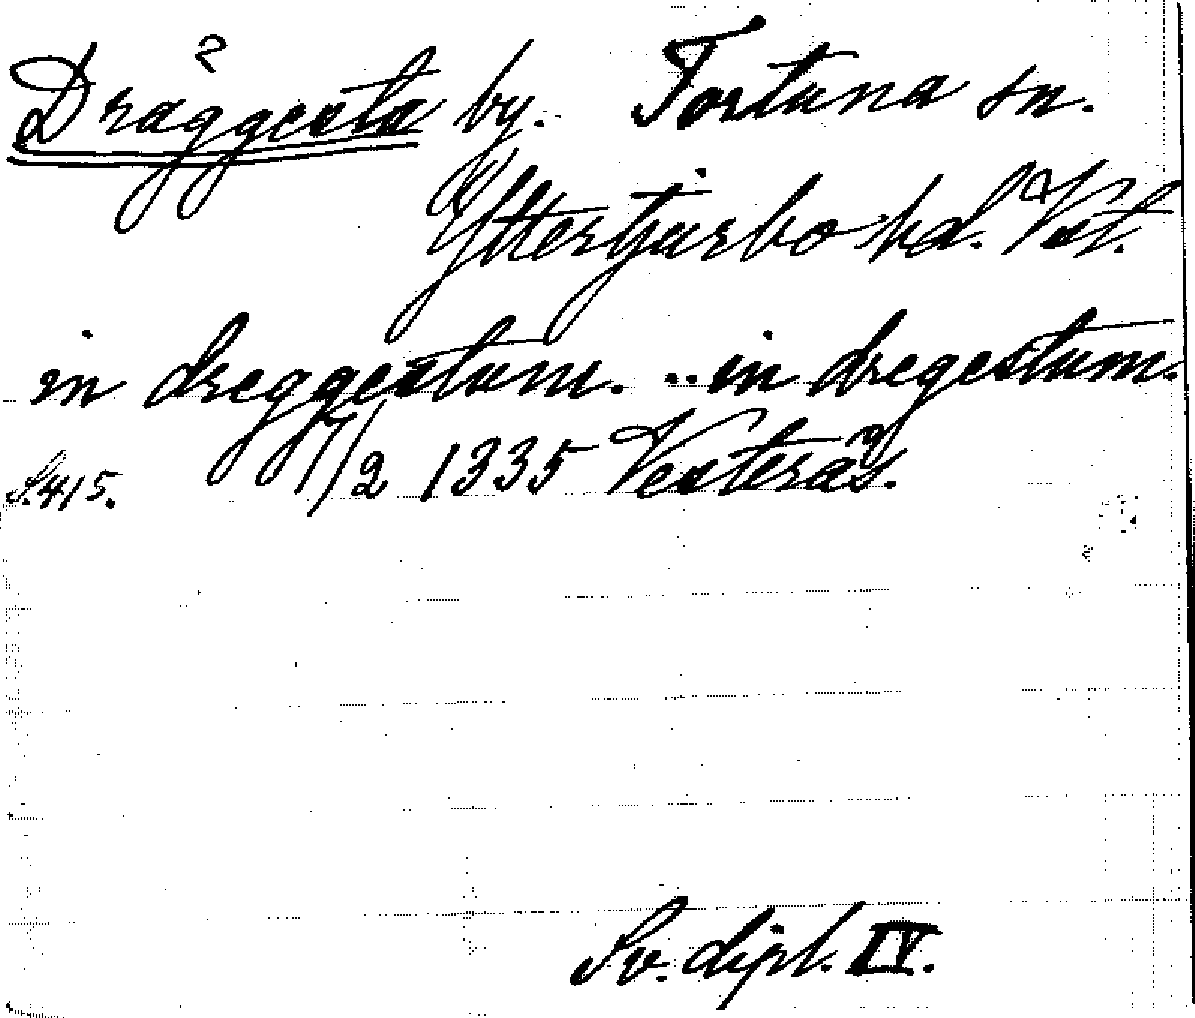 Dråggesta by. Tortuna sn.
Yttertjurbo hd. Väst.
in dreggestum. .. in dregestum.
S. 415. 17/2 1335 Vesterås.
Sv. dipl. IV.